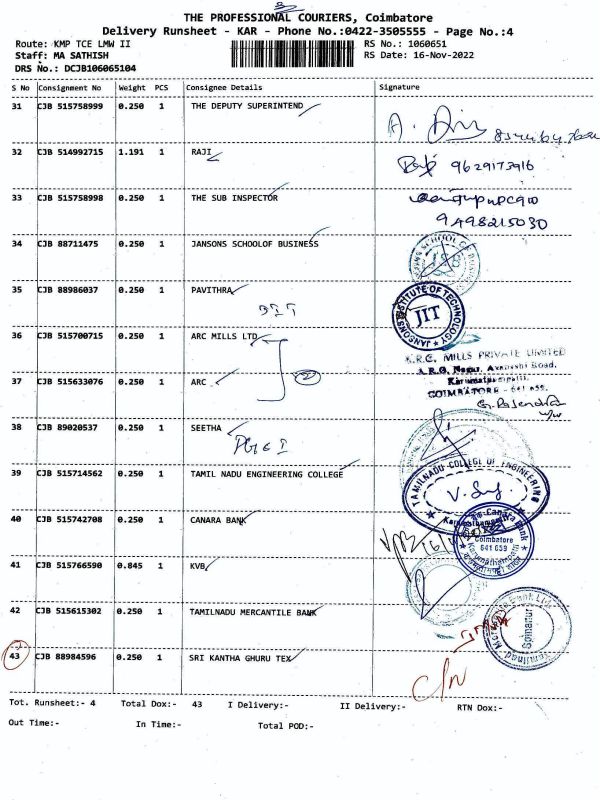 THE PROFESSIONAL COURIERS, Coimbatore
Delivery Runsheet - KAR - Phone No.:0422-3505555 - Page No.:4
Route: KMP TCE LMW II
RS No.: 1060651
Staff: MA SATHISH
RS Date: 16-Nov-2022
DRS No.: DCJB106065104
S No Consignment No Weight PCS Consignee Details Signature
31 CJB 515758999 0.250 1 THE DEPUTY SUPERINTEND
32 CJB 514992715 1.191 1 RAJI 9629173916
33 CJB 515758998 0.250 1 THE SUB INSPECTOR
9498215030
34 CJB 88711475 0.250 1 JANSONS SCHOOLOF BUSINESS
35 CJB 88986037 0.250 1 PAVITHRA
JANSONS INSTITUTE OF TECHNOLOGY
JIT
36 CJB 515700715 0.250 1 ARC MILLS LTD
MILLS PRIVATE LIMITED
37 CJB 515633076 0.250 1 ARC 2
COIMBATORE - 641 659.
G. Rajendra
38 CJB 89020537 0.250 1 SEETHA
39 CJB 515714562 0.250 1 TAMIL NADU ENGINEERING COLLEGE
TAMILNADU COLLEGE OF ENGINEERING
40 CJB 515742708 0.250 1 CANARA BANK
Canara Bank
Coimbatore
641 659
41 CJB 515766590 0.845 1 KVB
42 CJB 515615302 0.250 1 TAMILNADU MERCANTILE BANK
Tamilnad Mercantile Bank Ltd
43 CJB 88984596 0.250 1 SRI KANTHA GHURU TEX
Tot. Runsheet:- 4 Total Dox:- 43 I Delivery:- II Delivery:- RTN Dox:-
Out Time:- In Time:- Total POD:-